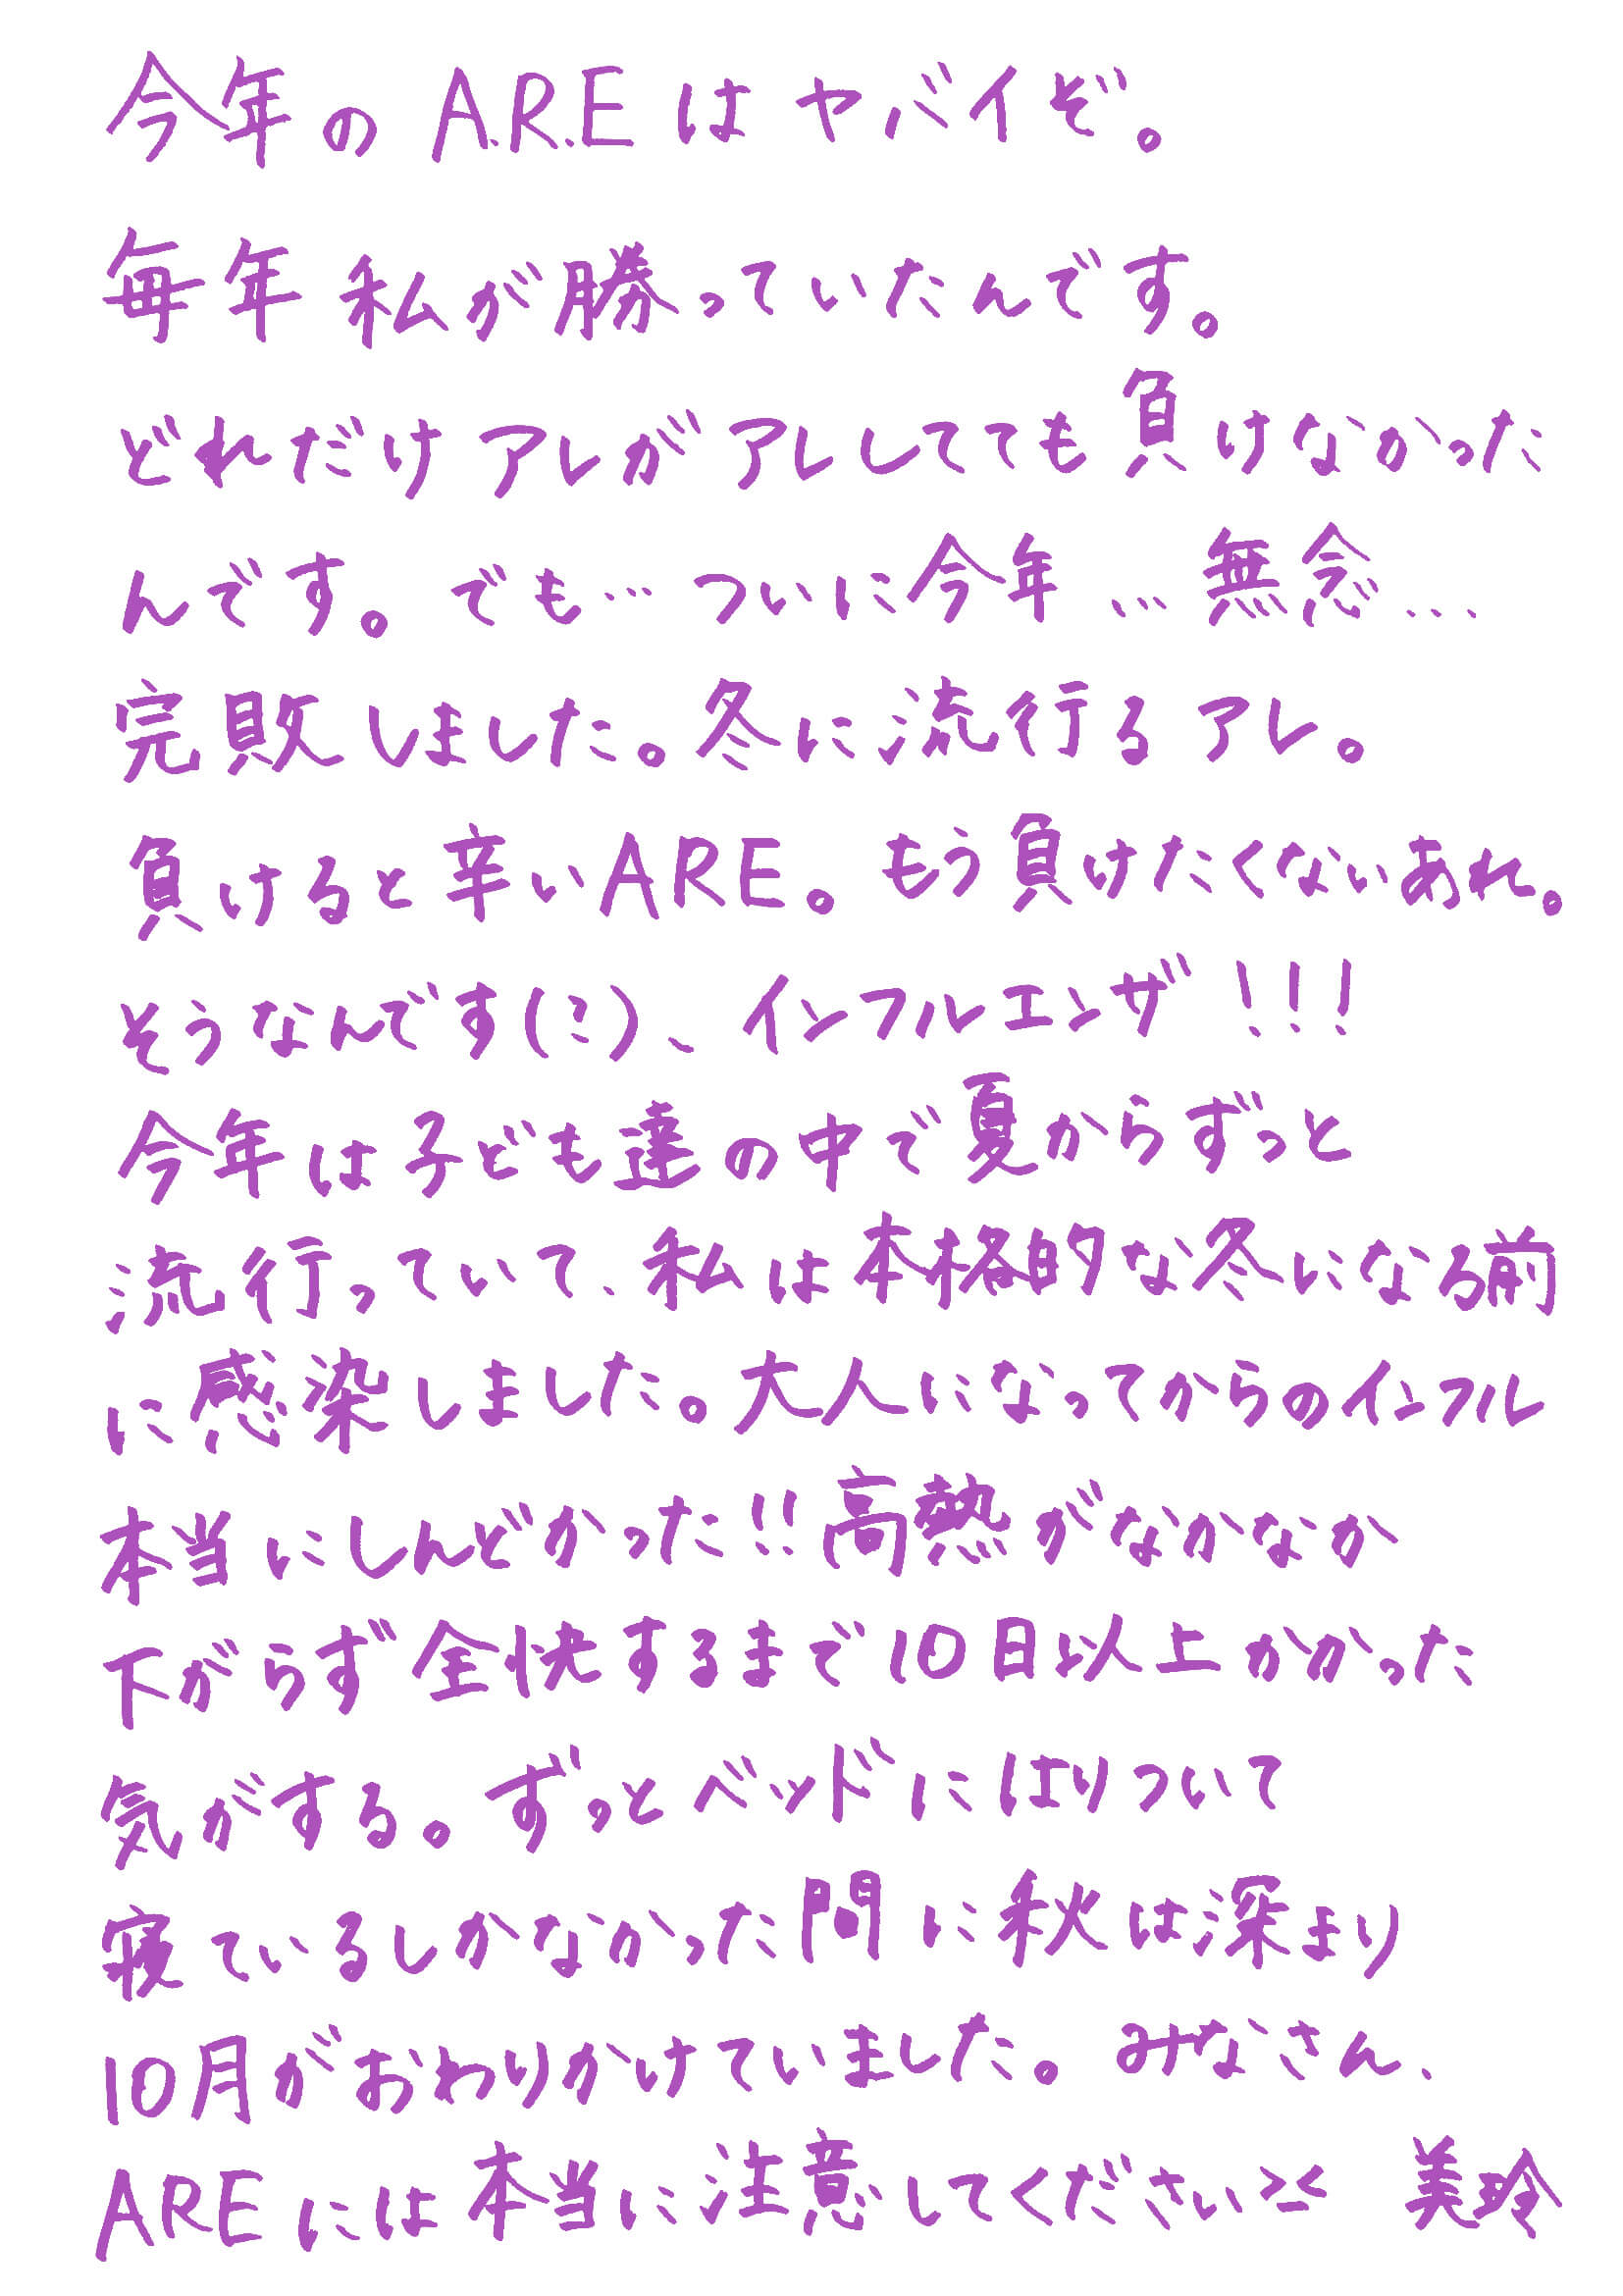 今年の A.R.E は ヤバイぞ。
毎年 私が勝っていたんです。
どれだけ アレが アレしてても 負けなかった
んです。でも… ついに今年 … 無念…
完敗しました。冬に流行る アレ。
負けると 辛い ARE。もう負けたくないあれ。
そうなんです(?)、インフルエンザ!!!
今年は子ども達の中で夏からずっと
流行っていて、私は本格的な冬になる前
に感染しました。大人になってからのインフル
本当にしんどかった!!高熱がなかなか
下がらず全快するまで10日以上かかった
気がする。ずっとベッドにはりついて
寝ているしかなかった間に秋は深まり
10月がおわりかけていました。みなさん、
AREには本当に注意してください>_< 美玲